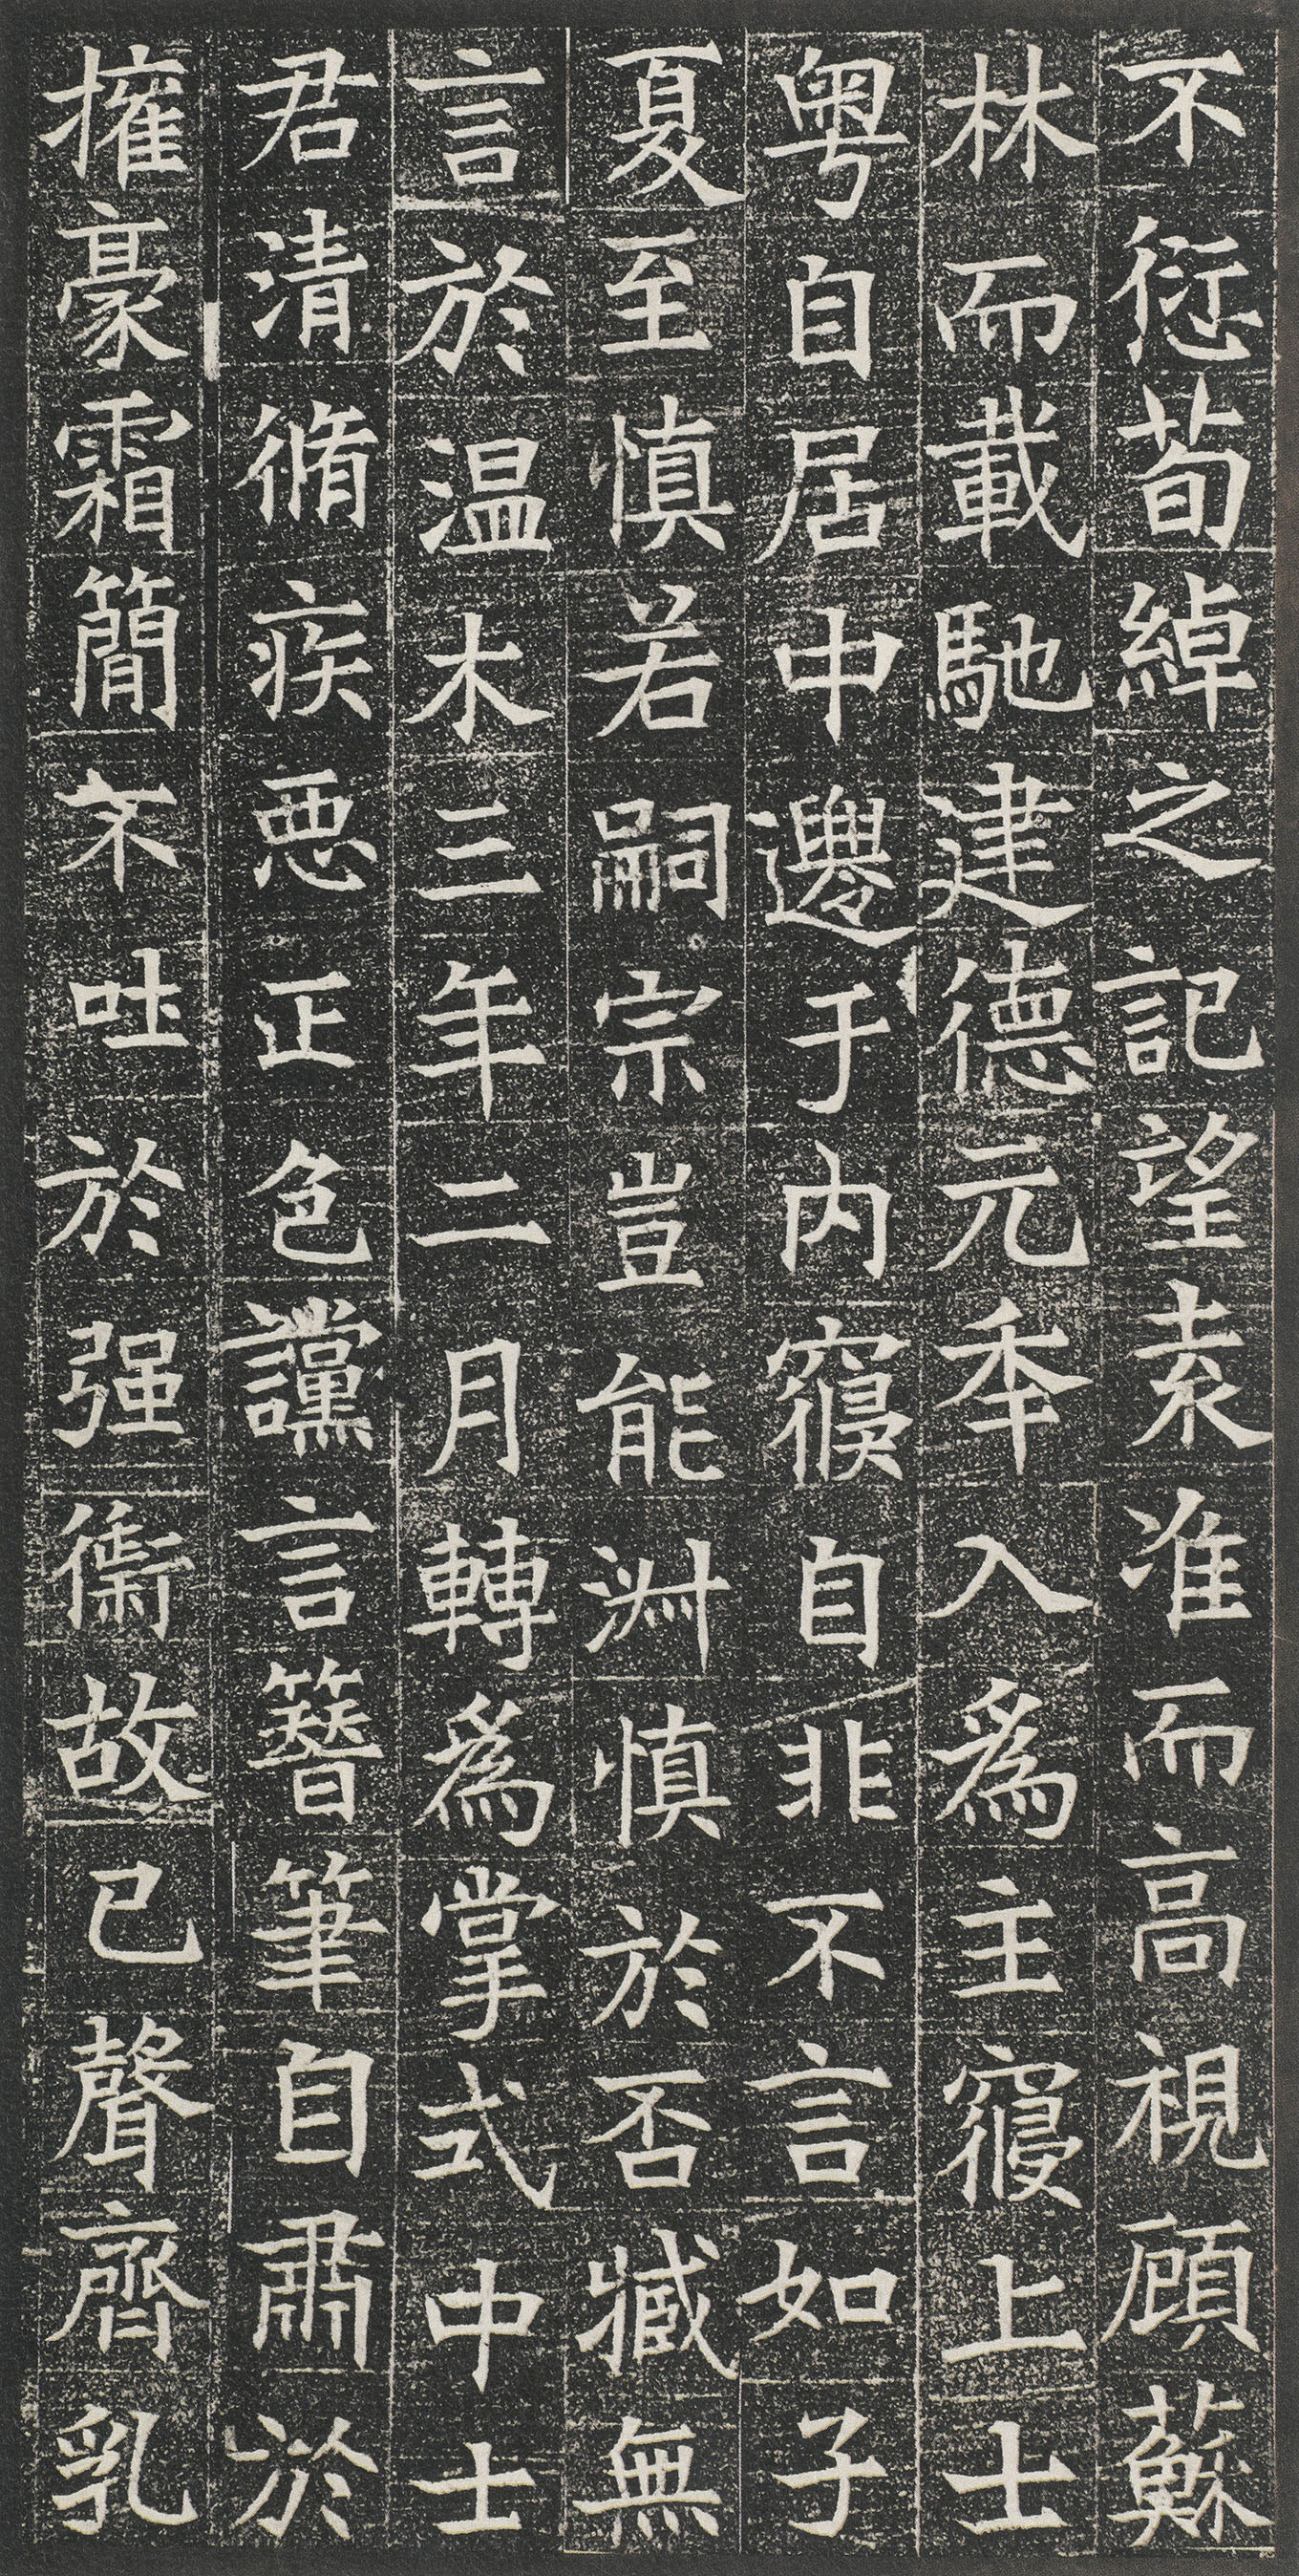 不愆荀綽之記望袁准而高視顧蘇
林而載馳建德元年入為主寑上士
粵自居中邊于內寑自非不言如子
夏至慎若嗣宗豈能淵慎於否臧無
言於温木三年二月轉為掌式中士
君清脩疾惡正色讜言簪筆自肅於
擁豪霜簡不吐於强禦故已聲齊乳